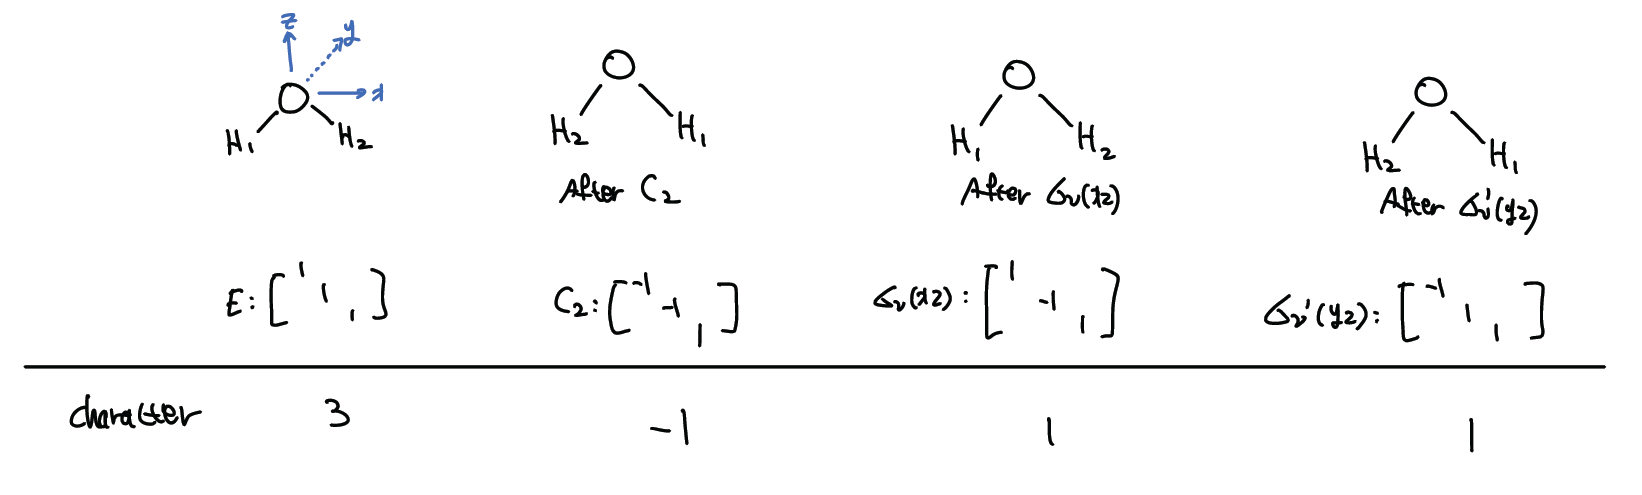 z
y
x
O
H₁ H₂
O
H₂ H₁
After C₂
O
H₁ H₂
After σᵥ(xz)
O
H₂ H₁
After σᵥ'(yz)
E: [1 1 1]
C₂: [-1 -1 1]
σᵥ(xz): [1 -1 1]
σᵥ'(yz): [-1 1 1]
character 3 -1 1 1